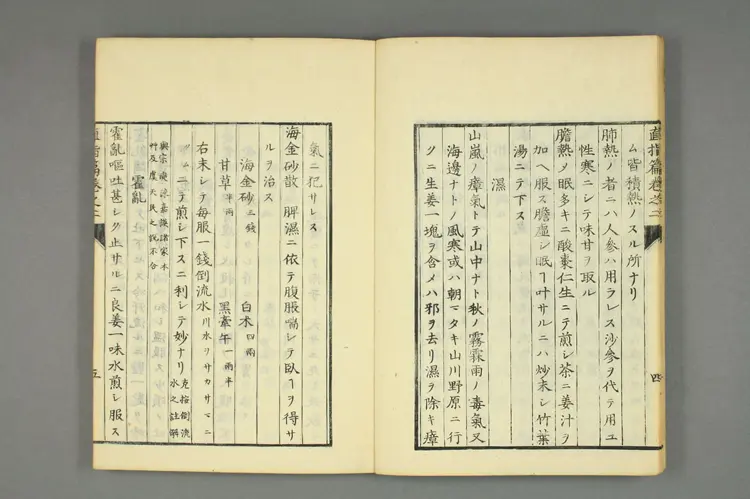 直指篇卷之二
四
ム皆積熱ノスル所ナリ
肺熱ノ者ニハ人參ハ用ラレス沙參ヲ代テ用ユ
性寒ニシテ味甘ヲ取ル
膽熱ノ眠多キニ酸棗仁生ニテ煎シ茶ニ姜汁ヲ
加ヘ服ス膽虛シ眠ヿ叶サルニハ炒末シ竹葉
湯ニテ下ス
濕
山嵐ノ瘴氣トテ山中ナト秋ノ霧霖雨ノ毒氣又
海邊ナトノ風寒或ハ朝マタキ山川野原ニ行
クニ生姜一塊ヲ含メハ邪ヲ去リ濕ヲ除キ瘴
氣ニ犯サレス
海金砂散 脾濕ニ依テ腹脹喘シテ臥ヿヲ得サ
ルヲ治ス
海金砂三錢 白朮四兩
甘草半兩 黑牽牛一兩半
右末シテ每服一錢倒流水川水ヲサカサマニ
ニテ煎シ下スニ利シテ妙ナリ
水之註解
霍亂
霍亂嘔吐甚シク止サルニ良姜一味水煎シ服ス
五